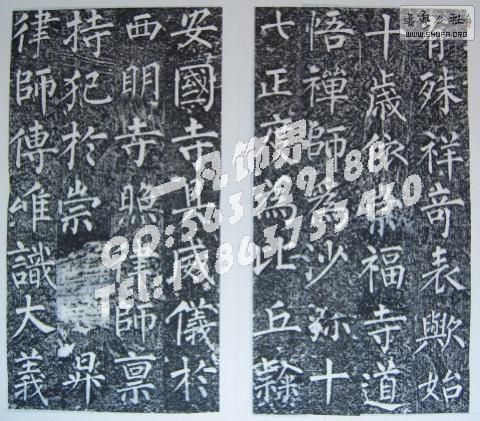 有殊祥奇表歟始
十歲依崇福寺道
悟禪師為沙弥十
七正度為比丘隸
安國寺具威儀於
西明寺照律師稟
持犯於崇昇
律師傳唯識大義
一凡饰界
QQ:563729188
TEL:
公社
www.SHUFA.ORG